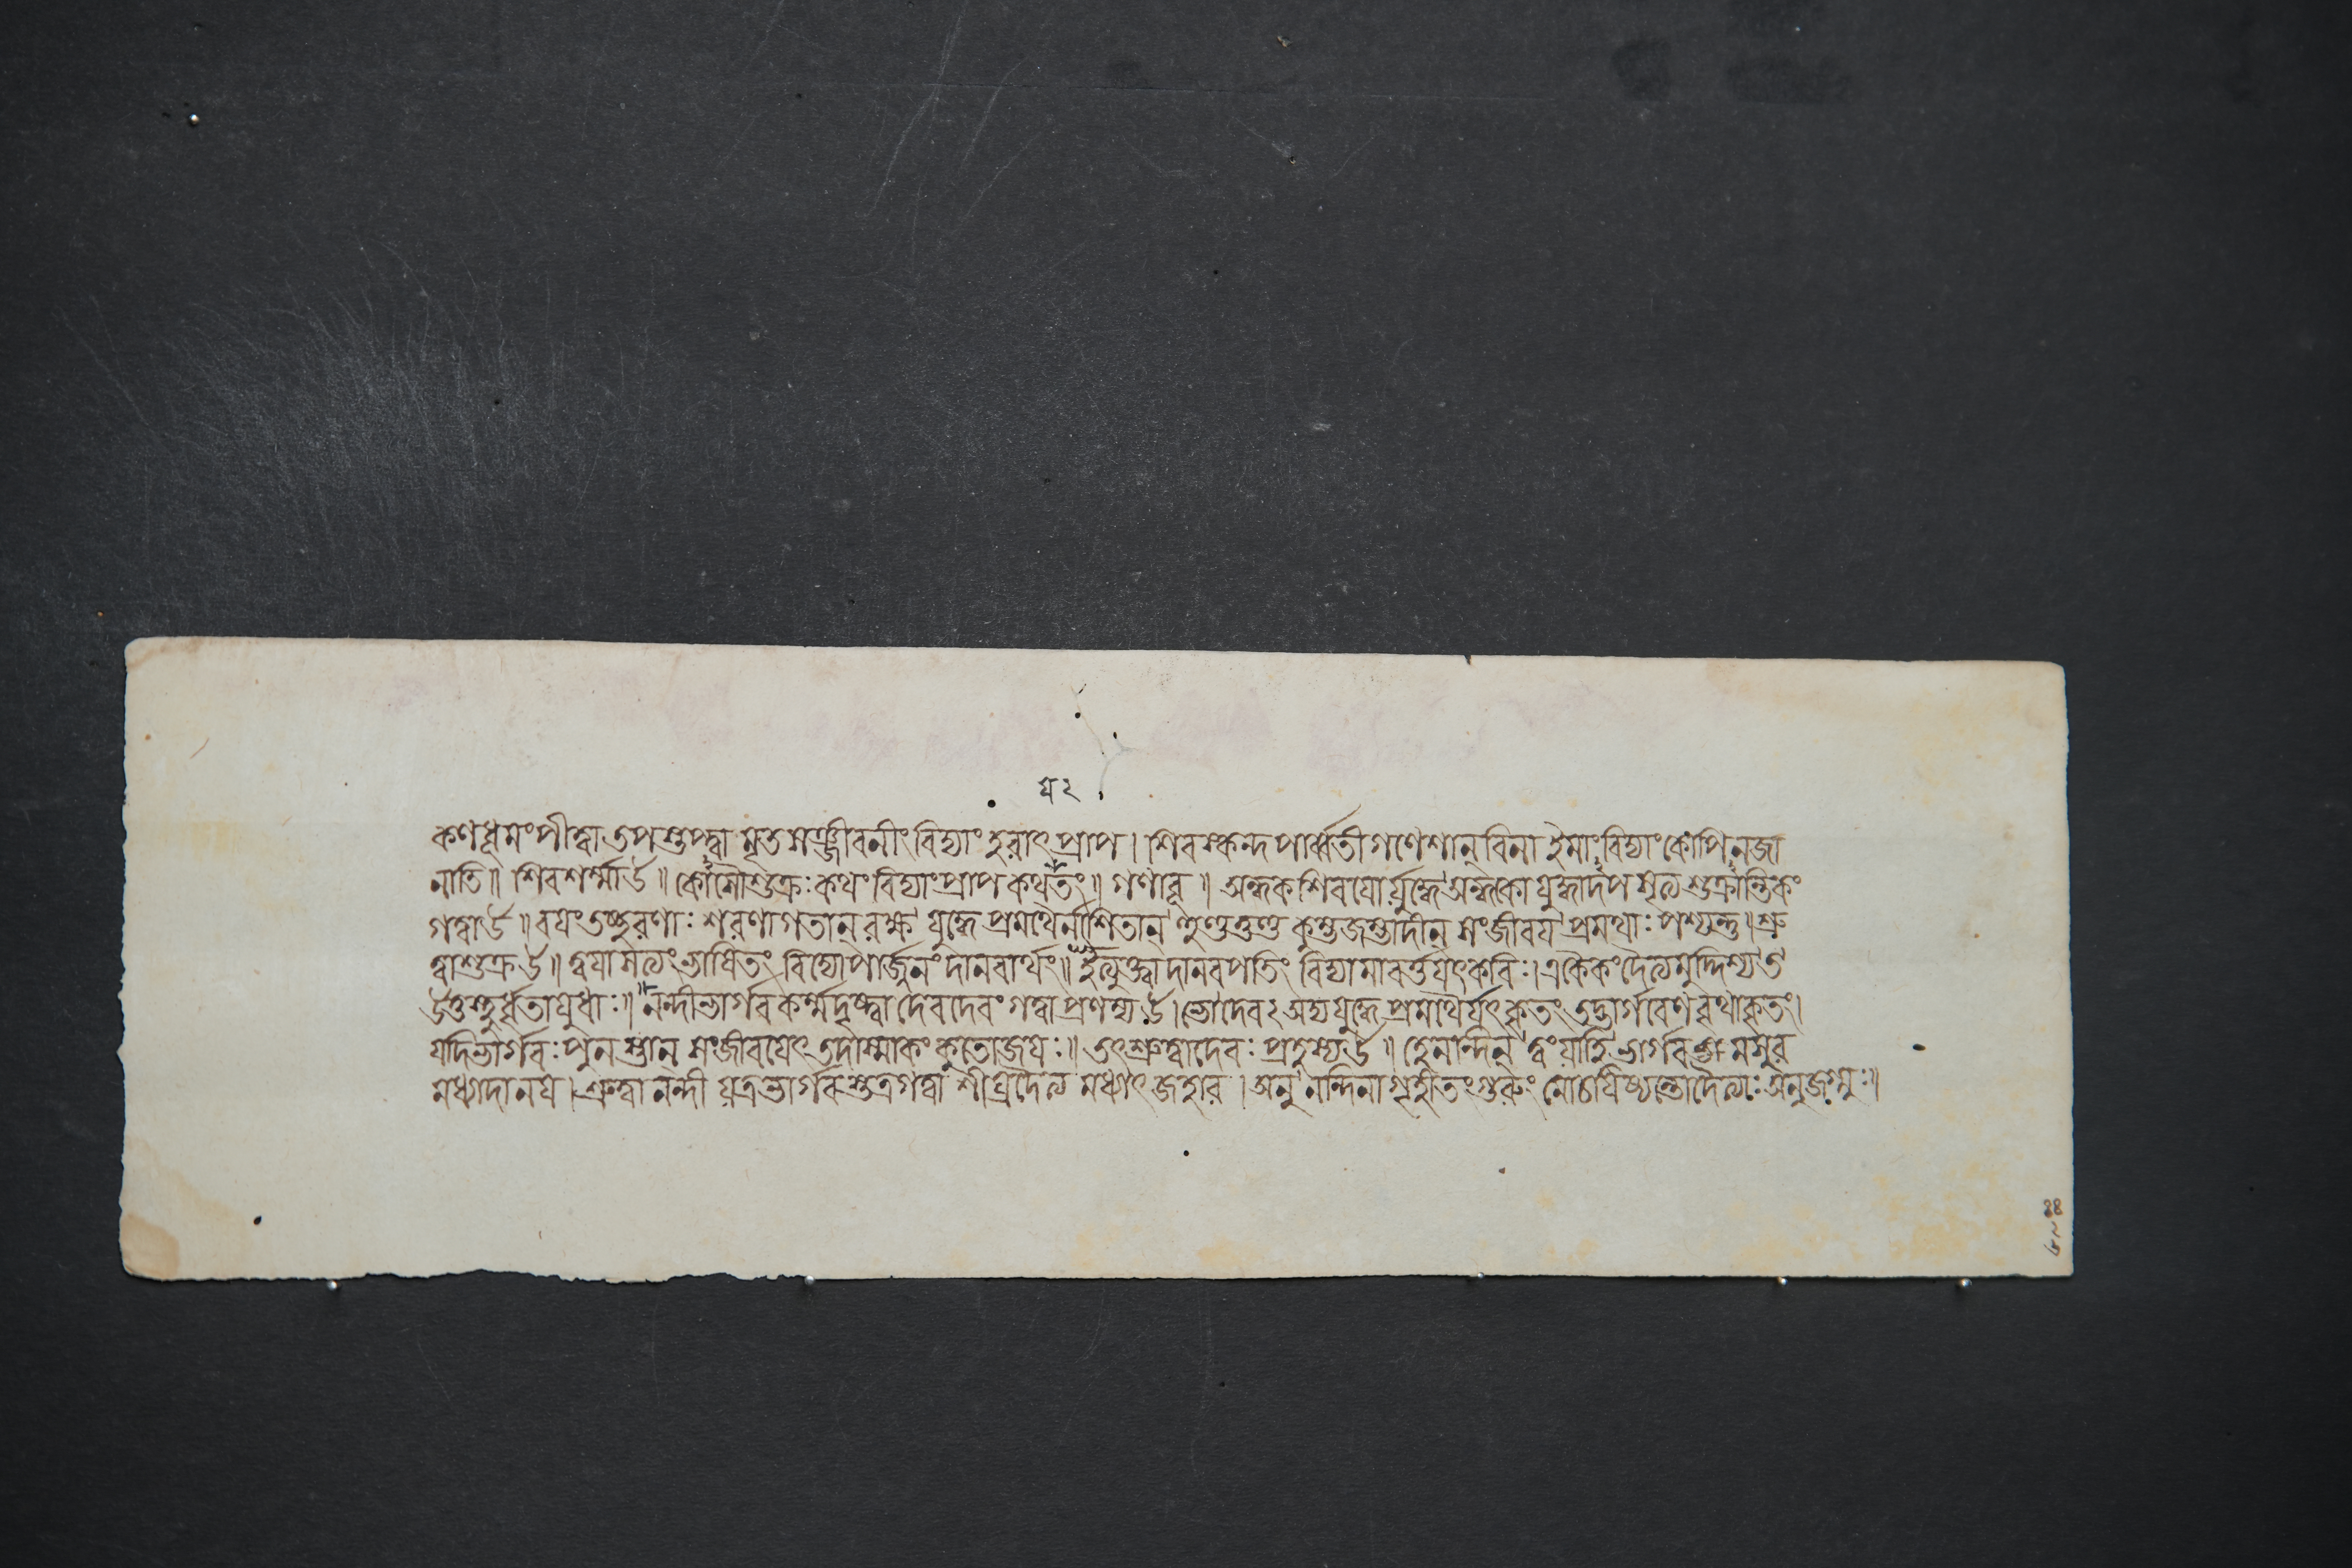 ঘ ২
কণধূমং পীত্বা তপস্তপ্ত্বা মৃতসঞ্জীবনীং বিদ্যাং হরাৎ প্রাপ। শিবস্কন্দপার্ব্বতীগণেশান্ বিনা ইমাং বিদ্যাং কোপি ন জা
নাতি॥ শিবশর্ম্মা উ॥ কোসৌ শুক্রঃ কথং বিদ্যাং প্রাপ কথ তং॥ গণাবূ॥ অন্ধকশিবযোর্যুদ্ধে অন্ধকো যুদ্ধাদপসৃত্য শুক্রান্তিকং
গত্বা উ॥ বযং ত্বচ্ছরণাঃ শরণাগতান্ রক্ষ যুদ্ধে প্রমথৈর্নাশিতান্ হুণ্ডতুণ্ড কুম্ভজম্ভাদীন্ সংজীবয প্রমথাঃ পশ্যন্তু॥ শ্রু
ত্বা শুক্র উ॥ ত্বযা সত্যং ভাষিতং বিদ্যোপার্জ্জনং দানবার্থং॥ ইত্যুক্ত্বা দানবপতিং বিদ্যামাবর্ত্তযৎ কবিঃ। একৈকং দৈত্যমুদ্দিশ্য ত
উত্তস্থুর্ধৃতাযুধাঃ॥ নন্দী ভার্গবকর্ম্ম দৃষ্ট্বা দেবদেবং গত্বা প্রণম্য উ। ভো দেব ২ অদ্য যুদ্ধে প্রমথৈর্যৎ কৃতং তদ্ভার্গবেণ বৃথা কৃতং।
যদি ভার্গবঃ পুনস্তান্ সংজীবযেৎ তদাস্মাকং কুতো জযঃ॥ তৎ শ্রুত্বা দেবঃ প্রহস্য উ॥ হে নন্দিন্ ত্বং যাহি ভার্গবং অসুর
মধ্যাদানয। শ্রুত্বা নন্দী যত্র ভার্গবস্তত্র গত্বা শীঘ্রং দৈত্যমধ্যাৎ জহার। অনু নন্দিনা গৃহীতং গুরুং মোচযিষ্যন্তো দৈত্যাঃ অনুজগ্মুঃ॥